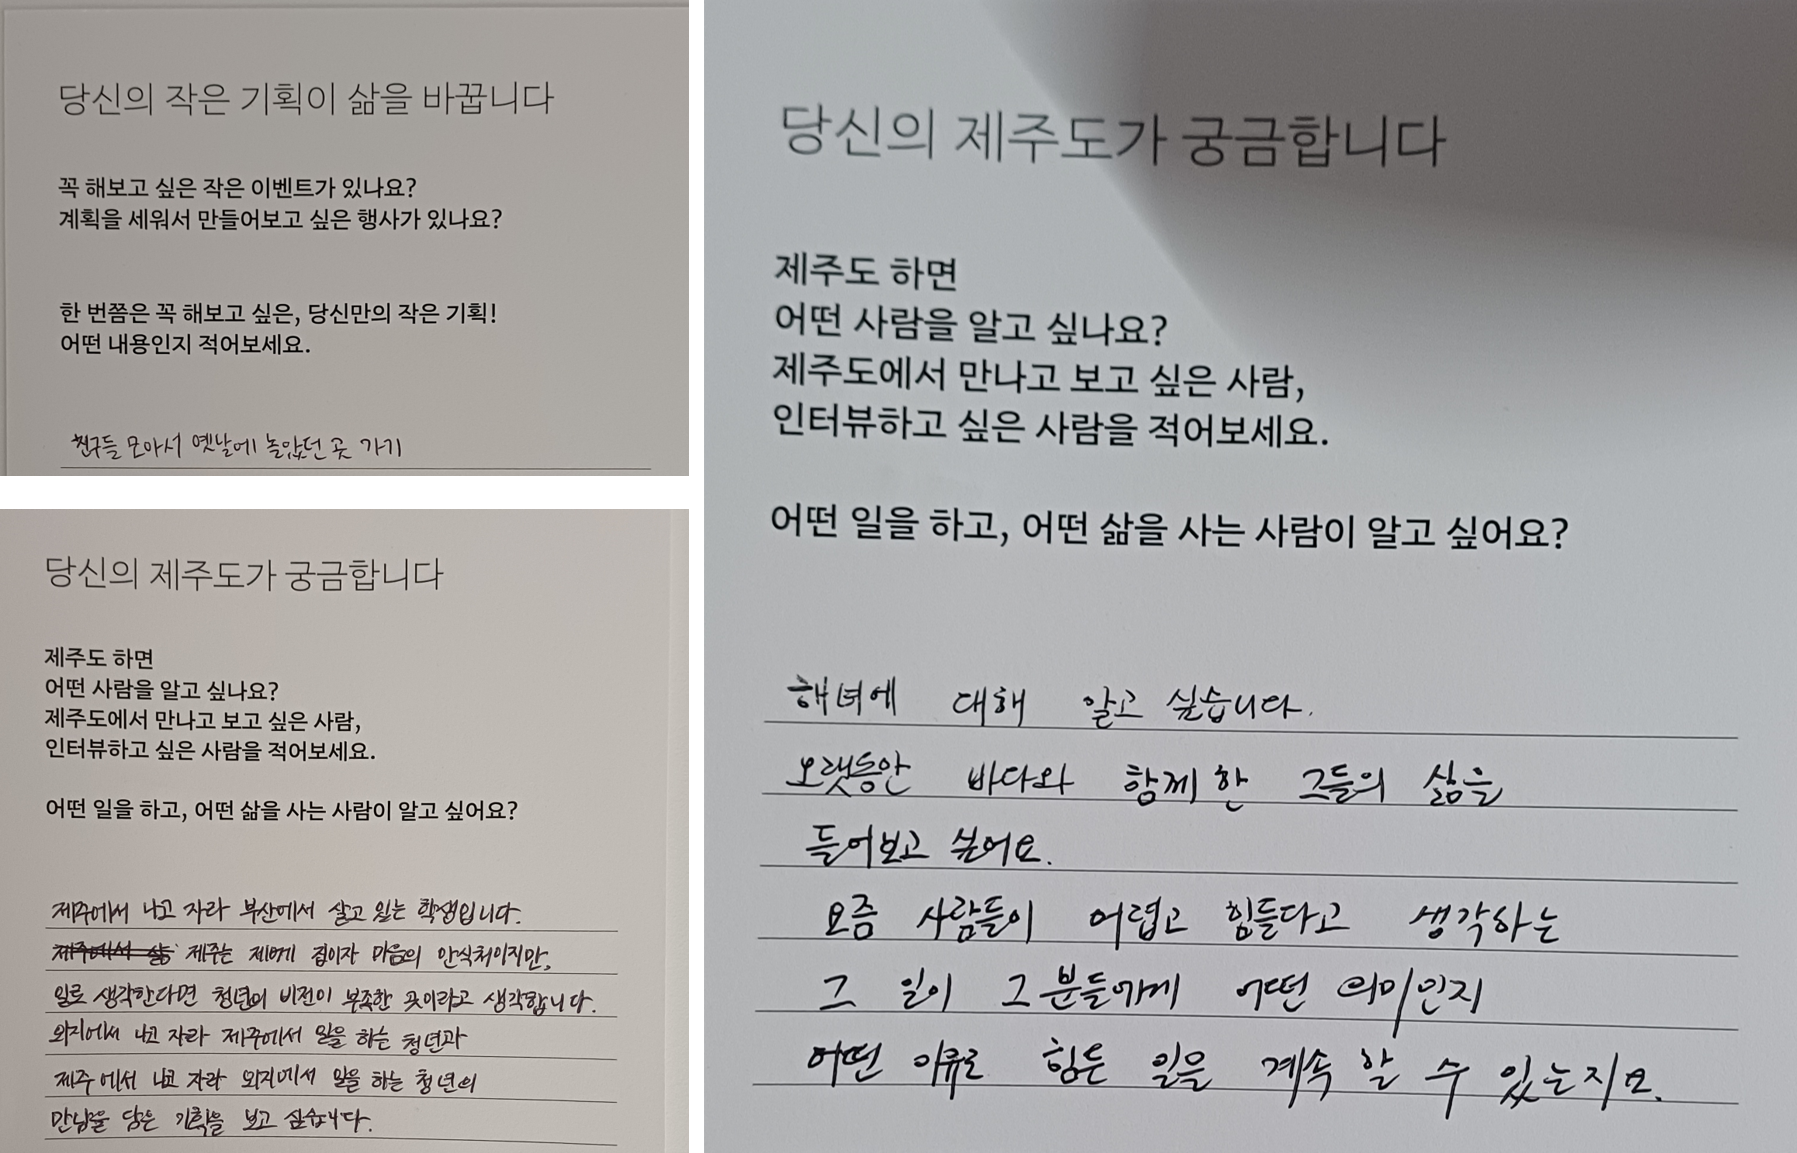 당신의 작은 기획이 삶을 바꿉니다
꼭 해보고 싶은 작은 이벤트가 있나요?
계획을 세워서 만들어보고 싶은 행사가 있나요?
한 번쯤은 꼭 해보고 싶은, 당신만의 작은 기획!
어떤 내용인지 적어보세요.
친구들 모아서 옛날에 놀았던 곳 가기
당신의 제주도가 궁금합니다
제주도 하면
어떤 사람을 알고 싶나요?
제주도에서 만나고 보고 싶은 사람,
인터뷰하고 싶은 사람을 적어보세요.
어떤 일을 하고, 어떤 삶을 사는 사람이 알고 싶어요?
제주에서 나고 자라 부산에서 살고 있는 학생입니다.
제주는 제에게 집이자 마음의 안식처이지만,
일로 생각한다면 청년의 비전이 부족한 곳이라고 생각합니다.
외지에서 나고 자라 제주에서 일을 하는 청년과
제주에서 나고 자라 외지에서 일을 하는 청년의
만남을 담은 기획을 보고 싶습니다.
당신의 제주도가 궁금합니다
제주도 하면
어떤 사람을 알고 싶나요?
제주도에서 만나고 보고 싶은 사람,
인터뷰하고 싶은 사람을 적어보세요.
어떤 일을 하고, 어떤 삶을 사는 사람이 알고 싶어요?
해녀에 대해 알고 싶습니다.
오랫동안 바다와 함께 한 그들의 삶을
들어보고 싶어요.
요즘 사람들이 어렵고 힘들다고 생각하는
그 일이 그분들에게 어떤 의미인지
어떤 이유로 힘든 일을 계속 할 수 있는지요.